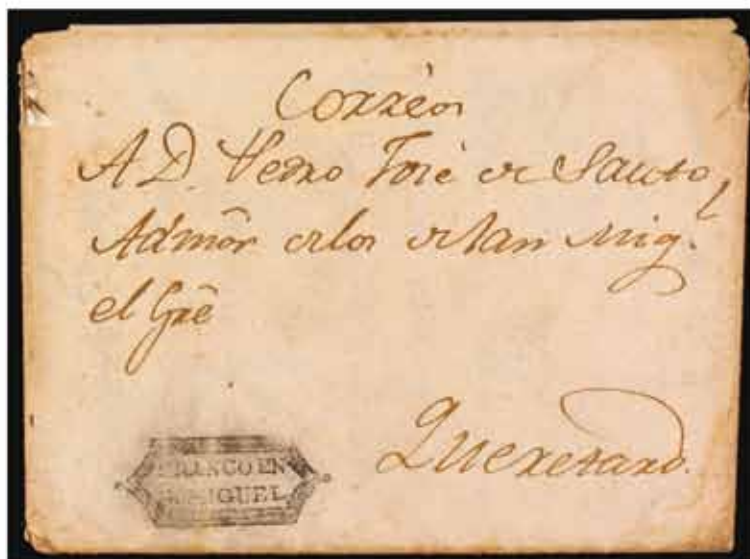 Corrèos
A D. Pedro José de Sauto,
Admõr de los de San Mig.l
el Grẽ
Queretaro.
FRANCO EN
S. MIGUEL